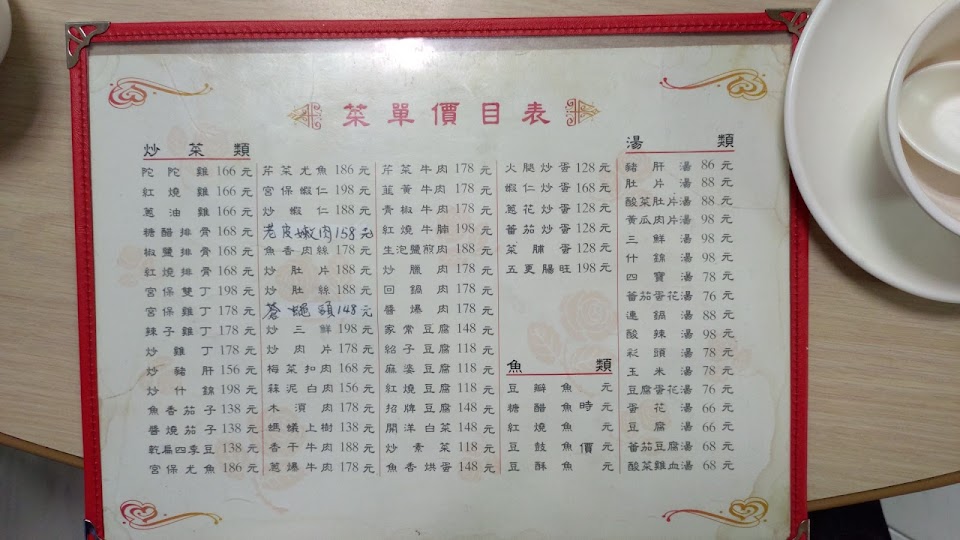 菜單價目表
炒菜類
陀陀雞 166元
紅燒雞 166元
蔥油雞 166元
糖醋排骨 168元
椒鹽排骨 168元
紅燒排骨 168元
宮保雙丁 198元
宮保雞丁 178元
辣子雞丁 178元
炒雞丁 178元
炒豬肝 156元
炒什錦 198元
魚香茄子 138元
醬燒茄子 138元
乾扁四季豆 138元
宮保尤魚 186元
芹菜尤魚 186元
宮保蝦仁 198元
炒蝦仁 188元
老皮嫩肉 158元
魚香肉絲 178元
炒肚片 188元
炒肚絲 188元
蒼蠅頭 148元
炒三鮮 198元
炒肉片 178元
梅菜扣肉 168元
蒜泥白肉 156元
木須肉 178元
螞蟻上樹 138元
香干牛肉 188元
蔥爆牛肉 178元
芹菜牛肉 178元
韮黃牛肉 178元
青椒牛肉 178元
紅燒牛腩 198元
生泡鹽煎肉 188元
炒臘肉 178元
回鍋肉 178元
醬爆肉 178元
家常豆腐 148元
紹子豆腐 118元
麻婆豆腐 118元
紅燒豆腐 118元
招牌豆腐 148元
開洋白菜 148元
炒素菜 118元
魚香烘蛋 148元
火腿炒蛋 128元
蝦仁炒蛋 168元
蔥花炒蛋 128元
蕃茄炒蛋 128元
菜脯蛋 128元
五更腸旺 198元
魚類
豆瓣魚 元
糖醋魚 時 元
紅燒魚 元
豆鼓魚 價 元
豆酥魚 元
湯類
豬肝湯 86元
肚片湯 88元
酸菜肚片湯 88元
黃瓜肉片湯 98元
三鮮湯 98元
什錦湯 98元
四寶湯 78元
蕃茄蛋花湯 76元
連鍋湯 88元
酸辣湯 98元
彩頭湯 78元
玉米湯 78元
豆腐蛋花湯 76元
蛋花湯 66元
豆腐湯 66元
蕃茄豆腐湯 68元
酸菜雞血湯 68元